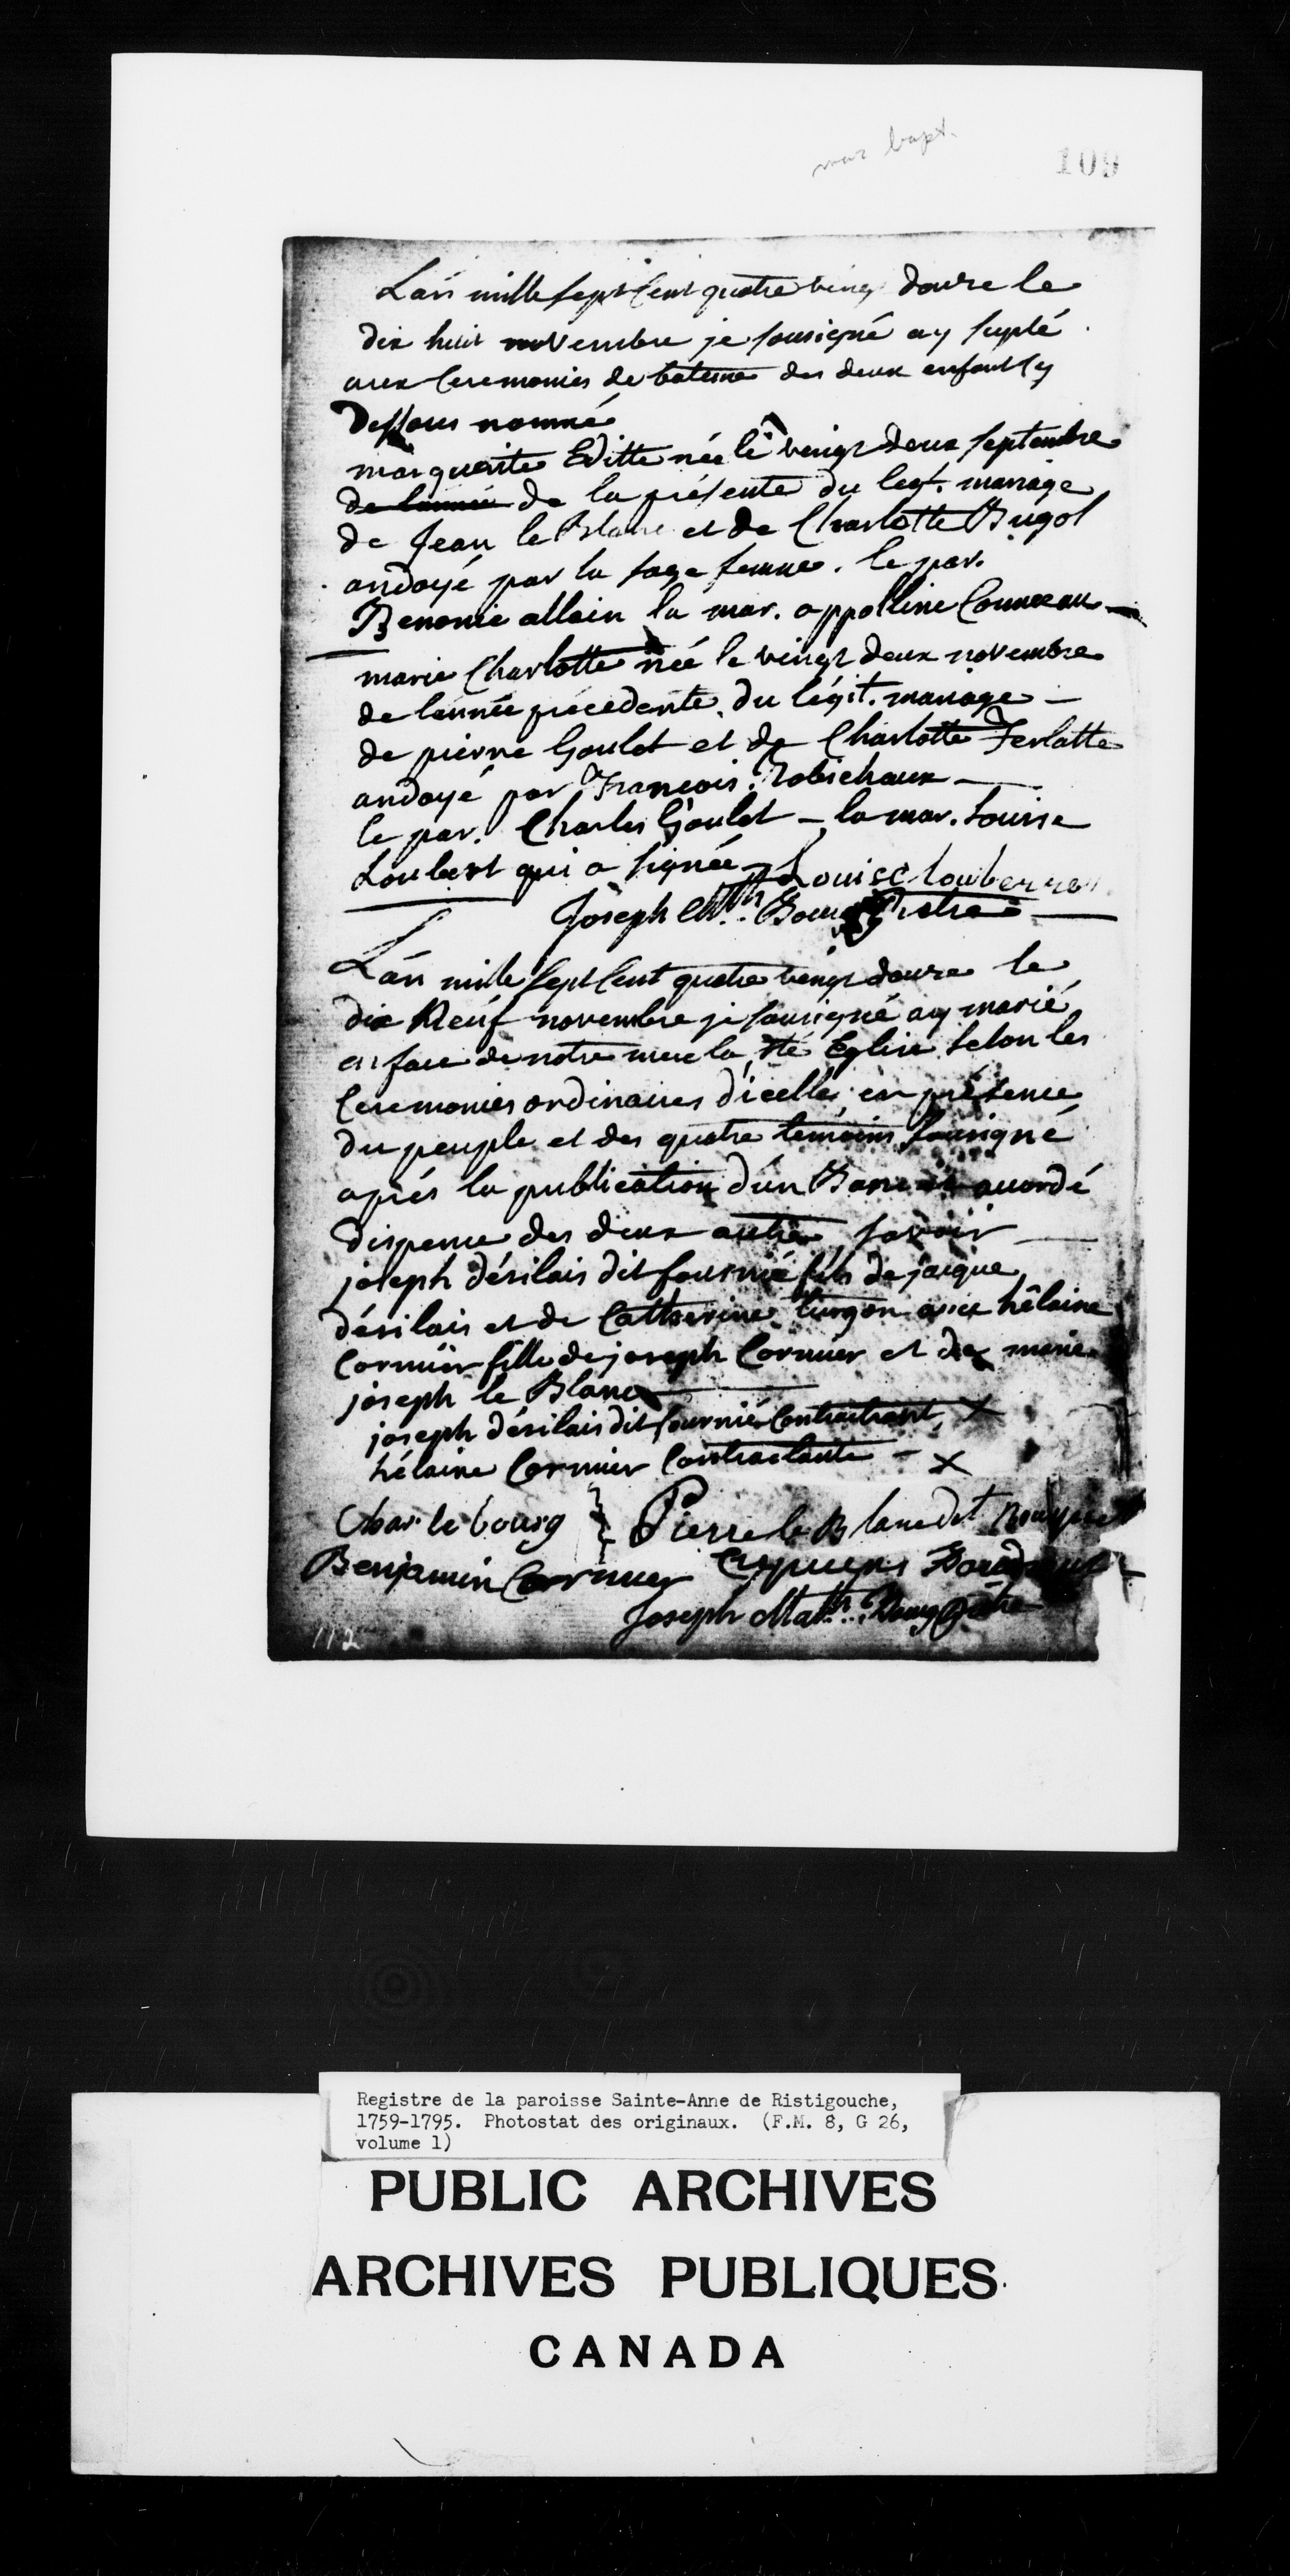 mar bapt.
109
L'an mille sept Cent quatre vingt douze le
dix huit novembre je sousigné ay suplé
aux Ceremonies de bateme des deux enfant cy
dessous nommé
marguerite Editte née le vingt deux septembre
de l'année de la présente du legt. mariage
de Jean le Blanc et de Charlotte Bugol
andoyé par la sage femme. le par.
Benonie allain la mar. appolline Commeau
marie Charlotte née le vingt deux novembre
de l'année précédente du légit. mariage
de pierre Goulet et de Charlotte Ferlatte
andoyé par François Robichaux
le par. Charles Goulet - la mar. Louise
Loubert qui a signée Louise louber
Joseph Mth. Bourg Ptre
L'an mille sept Cent quatre vingt douze le
dix Neuf novembre je sousigné ay marié
en face de notre mere la ste Eglise selon les
Ceremonies ordinaires d'icelle en présence
du peuple et des quatre temoins sousigné
aprés la publication d'un Banc accordé
dispense des deux autre savoir
joseph désilais dit fournié fils de jacque
désilais et de Catherine turgon avec hélaine
Cormier fille de joseph Cormier et de marie
joseph le Blanc
joseph désilais dit fournié Contractant X
hélaine Cormier Contractante - X
Charle bourg } Pierre le Blanc dit
Benjamin Cormier
Joseph Math. Bourg Ptre
112
Registre de la paroisse Sainte-Anne de Ristigouche,
1759-1795. Photostat des originaux. (F.M. 8, G 26,
volume 1)
PUBLIC ARCHIVES
ARCHIVES PUBLIQUES
CANADA